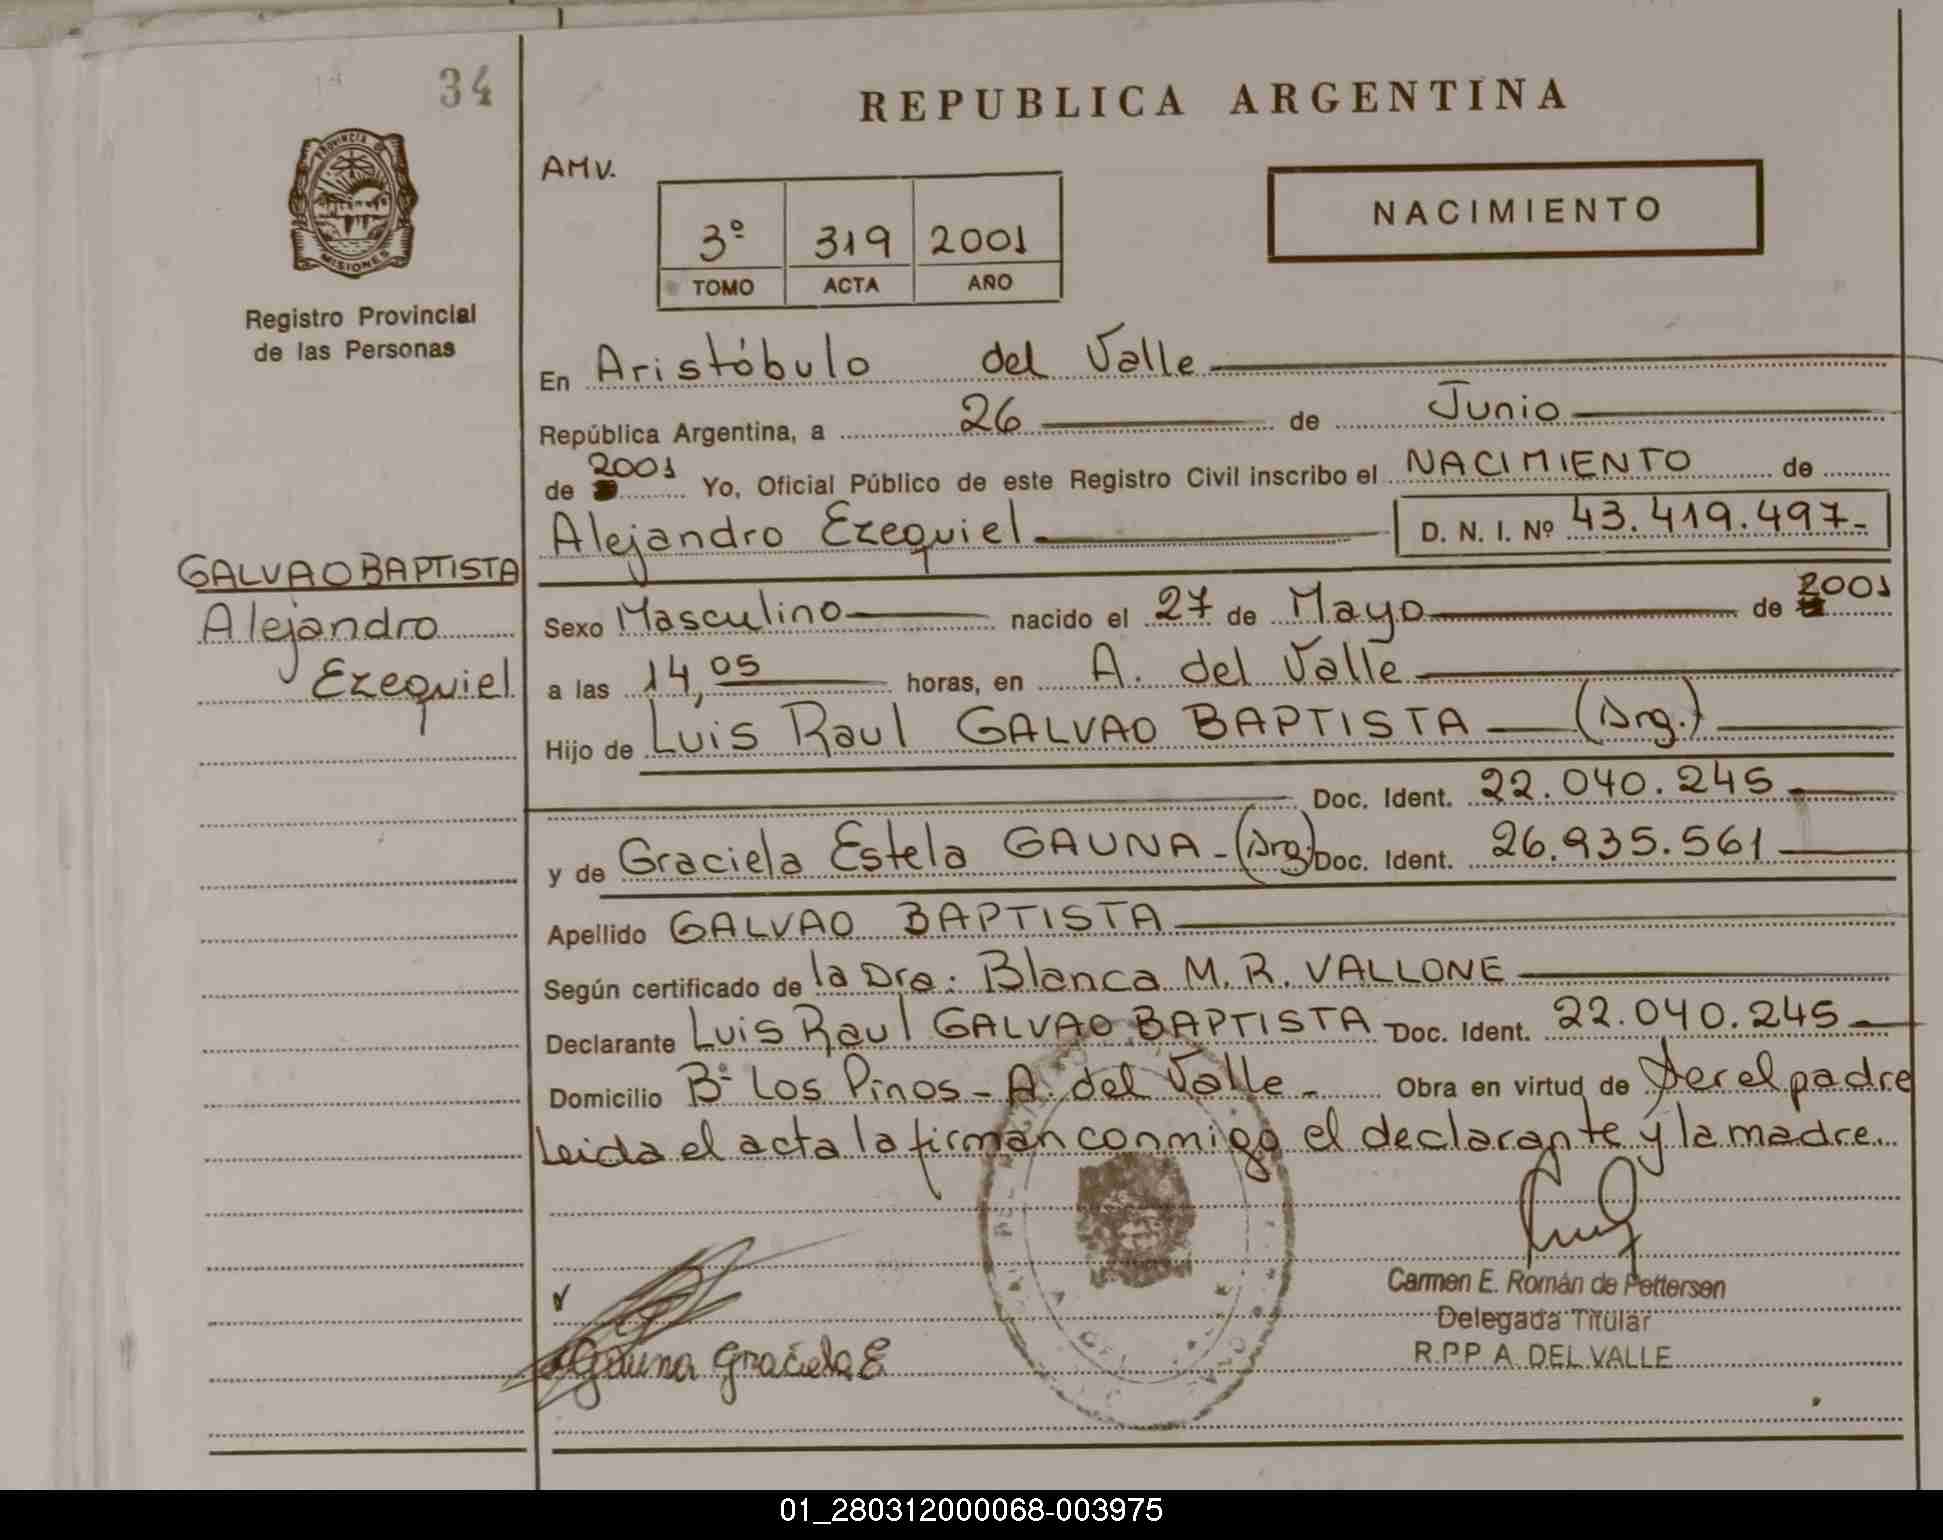 34
PROVINCIA DE
MISIONES
Registro Provincial
de las Personas
GALVAO BAPTISTA
Alejandro
Ezequiel
REPUBLICA ARGENTINA
AMV.
3º 319 2001
TOMO ACTA AÑO
NACIMIENTO
En Aristóbulo del Valle
República Argentina, a 26 de Junio
de 2001 Yo, Oficial Público de este Registro Civil inscribo el NACIMIENTO de
Alejandro Ezequiel D. N. I. Nº 43.419.497-
Sexo Masculino nacido el 27 de Mayo de 2001
a las 14,05 horas, en A. del Valle
Hijo de Luis Raul GALVAO BAPTISTA (Arg.)
Doc. Ident. 22.040.245
y de Graciela Estela GAUNA - (Arg.) Doc. Ident. 26.935.561
Apellido GALVAO BAPTISTA
Según certificado de la Dra. Blanca M. R. VALLONE
Declarante Luis Raul GALVAO BAPTISTA - Doc. Ident. 22.040.245
Domicilio Bº Los Pinos - A. del Valle - Obra en virtud de ser el padre
Leida el acta la firman conmigo el declarante y la madre
Gauna Graciela E
Carmen E. Román de Pettersen
Delegada Titular
R.P.P A. DEL VALLE
01_280312000068-003975